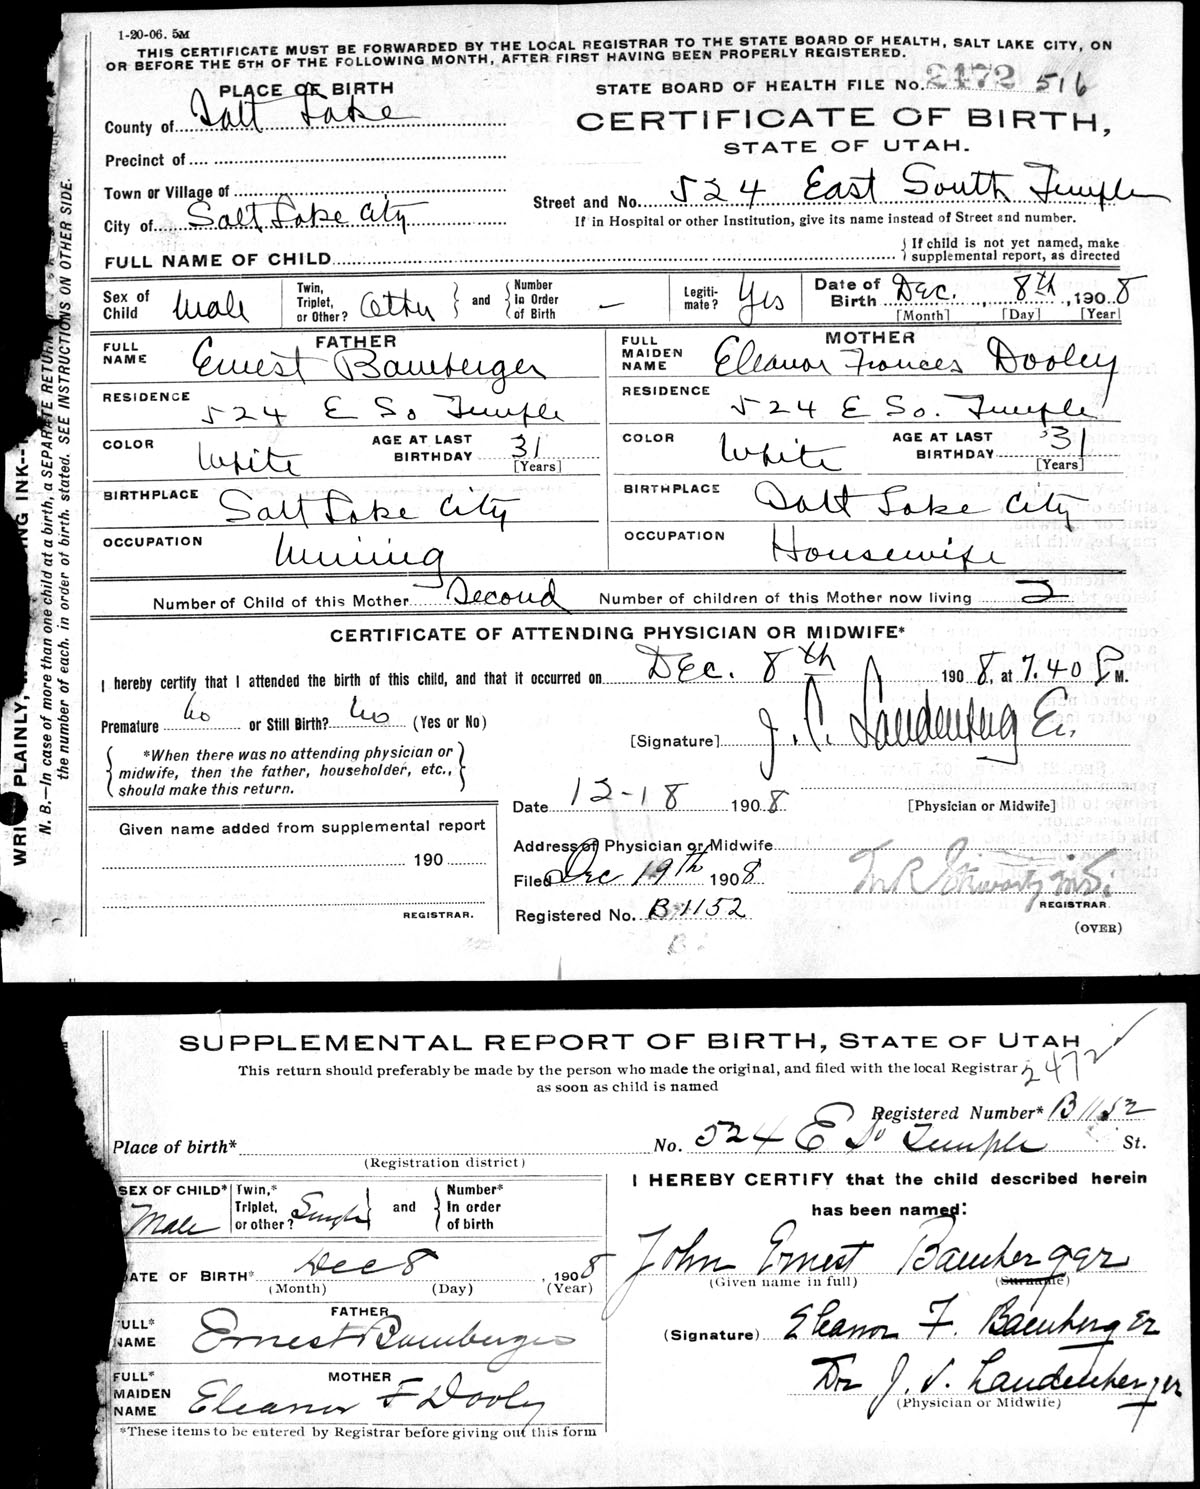 1-20-06. 5M
THIS CERTIFICATE MUST BE FORWARDED BY THE LOCAL REGISTRAR TO THE STATE BOARD OF HEALTH, SALT LAKE CITY, ON
OR BEFORE THE 5TH OF THE FOLLOWING MONTH, AFTER FIRST HAVING BEEN PROPERLY REGISTERED.
STATE BOARD OF HEALTH FILE No. 2472 516
CERTIFICATE OF BIRTH,
STATE OF UTAH.
PLACE OF BIRTH
County of Salt Lake
Precinct of
Town or Village of
City of Salt Lake City
Street and No. 524 East South Temple
If in Hospital or other Institution, give its name instead of Street and number.
FULL NAME OF CHILD
If child is not yet named, make
supplemental report, as directed
Sex of Child Male
Twin, Triplet, or Other? Other and Number In Order of Birth —
Legiti-mate? Yes
Date of Birth Dec. , 8th , 1908
[Month] [Day] [Year]
FATHER
FULL NAME Ernest Bamberger
RESIDENCE 524 E So Temple
COLOR White AGE AT LAST BIRTHDAY 31
[Years]
BIRTHPLACE Salt Lake City
OCCUPATION Mining
MOTHER
FULL MAIDEN NAME Eleanor Frances Dooley
RESIDENCE 524 E So. Temple
COLOR White AGE AT LAST BIRTHDAY 31
[Years]
BIRTHPLACE Salt Lake City
OCCUPATION Housewife
Number of Child of this Mother Second Number of children of this Mother now living 2
CERTIFICATE OF ATTENDING PHYSICIAN OR MIDWIFE*
I hereby certify that I attended the birth of this child, and that it occurred on Dec. 8th 1908, at 7.40 P M.
Premature No or Still Birth? No (Yes or No)
*When there was no attending physician or
midwife, then the father, householder, etc.,
should make this return.
[Signature] J. C. Landenberger
Date 12-18 1908
[Physician or Midwife]
Address of Physician or Midwife
Filed Dec 19th 1908
Registered No. B 1152
REGISTRAR.
(OVER)
Given name added from supplemental report
190
REGISTRAR.
PLAINLY,
INK--
N. B.—In case of more than one child at a birth, a SEPARATE RETURN
the number of each, in order of birth, stated. SEE INSTRUCTIONS ON OTHER SIDE.
SUPPLEMENTAL REPORT OF BIRTH, STATE OF UTAH
This return should preferably be made by the person who made the original, and filed with the local Registrar
as soon as child is named
2472
Registered Number* B 1152
Place of birth* No. 524 E So Temple St.
(Registration district)
SEX OF CHILD* Male
Twin,* Triplet, or other? Single and Number* In order of birth
DATE OF BIRTH* Dec 8 , 1908
(Month) (Day) (Year)
FATHER
FULL* NAME Ernest Bamberger
MOTHER
FULL* MAIDEN NAME Eleanor F Dooly
*These items to be entered by Registrar before giving out this form
I HEREBY CERTIFY that the child described herein
has been named:
John Ernest Bamberger
(Given name in full) (Surname)
(Signature) Eleanor F. Bamberger
Dr J. C. Landenberger
(Physician or Midwife)